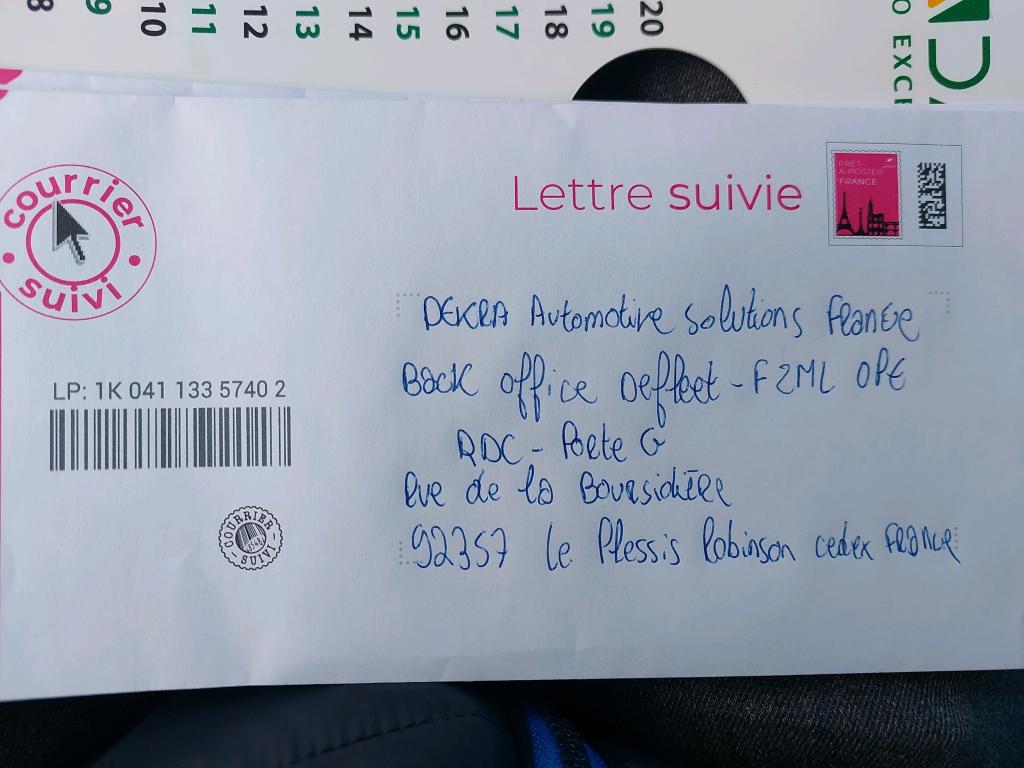 8 9 10 11 12 13 14 15 16 17 18 19 20
O EXCE
DA
courrier suivi
Lettre suivie
PRÊT-
À-POSTER
FRANCE
DEKRA Automotive Solutions France
Back office Defleet - F2ML OPE
RDC - Porte G
Rue de la Boursidière
92357 Le Plessis Robinson cedex France
LP: 1K 041 133 5740 2
COURRIER SUIVI